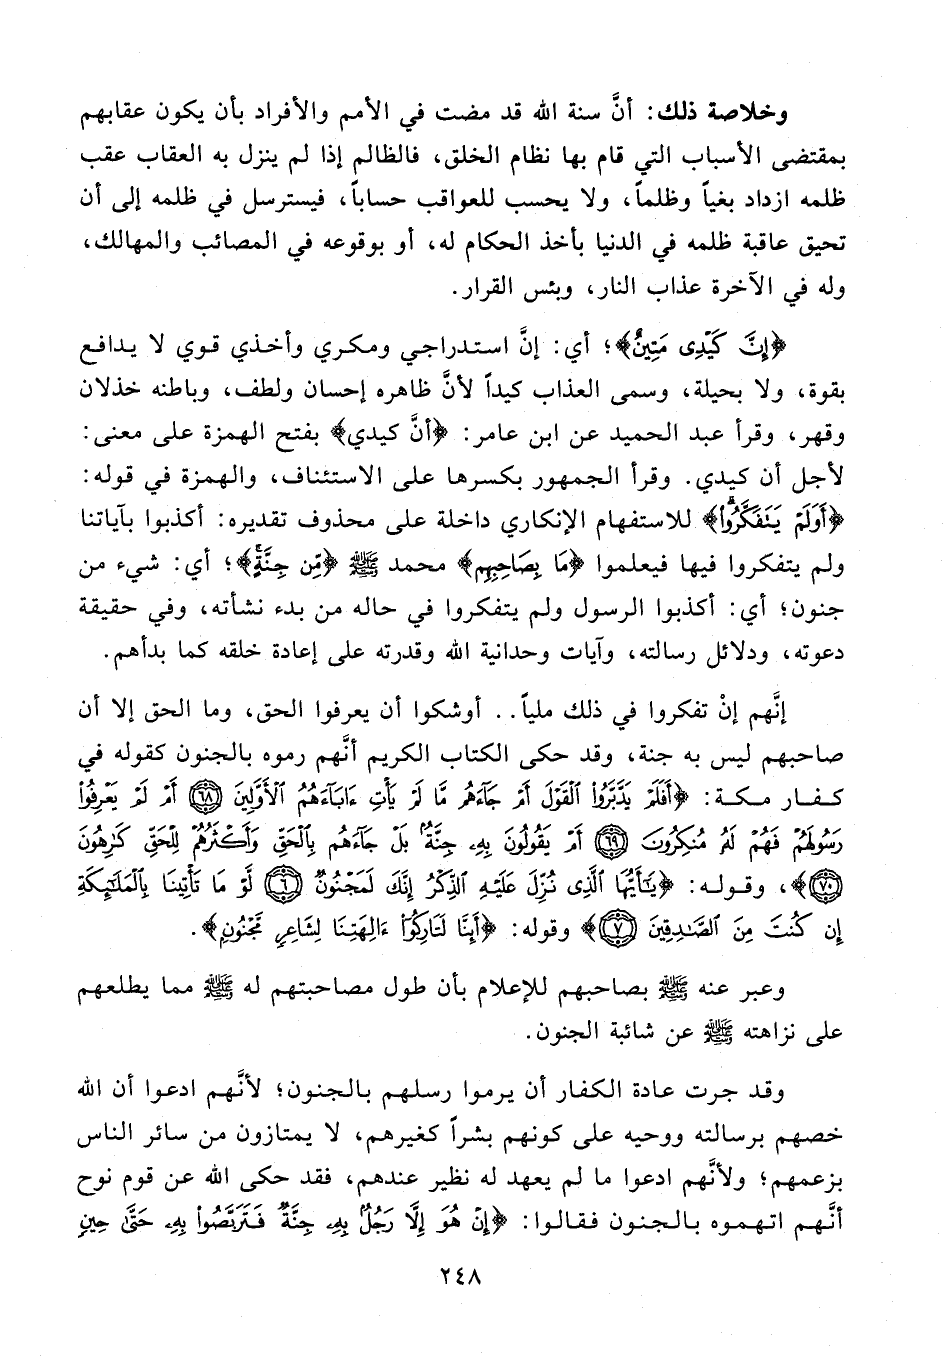 وخلاصة ذلك: أنَّ سنة الله قد مضت في الأمم والأفراد بأن يكون عقابهم
بمقتضى الأسباب التي قام بها نظام الخلق، فالظالم إذا لم ينزل به العقاب عقب
ظلمه ازداد بغياً وظلماً، ولا يحسب للعواقب حساباً، فيسترسل في ظلمه إلى أن
تحيق عاقبة ظلمه في الدنيا بأخذ الحكام له، أو بوقوعه في المصائب والمهالك،
وله في الآخرة عذاب النار، وبئس القرار.
﴿إِنَّ كَيْدِى مَتِينٌ﴾؛ أي: إنَّ استدراجي ومكري وأخذي قوي لا يدافع
بقوة، ولا بحيلة، وسمى العذاب كيداً لأنَّ ظاهره إحسان ولطف، وباطنه خذلان
وقهر، وقرأ عبد الحميد عن ابن عامر: ﴿أنَّ كيدي﴾ بفتح الهمزة على معنى:
لأجل أن كيدي. وقرأ الجمهور بكسرها على الاستئناف، والهمزة في قوله:
﴿أَوَلَمْ يَتَفَكَّرُواْ﴾ للاستفهام الإنكاري داخلة على محذوف تقديره: أكذبوا بآياتنا
ولم يتفكروا فيها فيعلموا ﴿مَا بِصَاحِبِهِم﴾ محمد ﷺ ﴿مِّن جِنَّةٍ﴾؛ أي: شيء من
جنون؛ أي: أكذبوا الرسول ولم يتفكروا في حاله من بدء نشأته، وفي حقيقة
دعوته، ودلائل رسالته، وآيات وحدانية الله وقدرته على إعادة خلقه كما بدأهم.
إنَّهم إنْ تفكروا في ذلك ملياً.. أوشكوا أن يعرفوا الحق، وما الحق إلا أن
صاحبهم ليس به جنة، وقد حكى الكتاب الكريم أنَّهم رموه بالجنون كقوله في
كفار مكة: ﴿أَفَلَمْ يَدَّبَّرُواْ ٱلْقَوْلَ أَمْ جَآءَهُم مَّا لَمْ يَأْتِ ءَابَآءَهُمُ ٱلْأَوَّلِينَ ٦٨ أَمْ لَمْ يَعْرِفُواْ
رَسُولَهُمْ فَهُمْ لَهُۥ مُنكِرُونَ ٦٩ أَمْ يَقُولُونَ بِهِۦ جِنَّةٌۢ بَلْ جَآءَهُم بِٱلْحَقِّ وَأَكْثَرُهُمْ لِلْحَقِّ كَٰرِهُونَ
٧٠﴾، وقوله: ﴿يَٰٓأَيُّهَا ٱلَّذِى نُزِّلَ عَلَيْهِ ٱلذِّكْرُ إِنَّكَ لَمَجْنُونٌ ٦ لَّوْ مَا تَأْتِينَا بِٱلْمَلَٰٓئِكَةِ
إِن كُنتَ مِنَ ٱلصَّٰدِقِينَ ٧﴾ وقوله: ﴿أَئِنَّا لَتَارِكُوٓاْ ءَالِهَتِنَا لِشَاعِرٍ مَّجْنُونٍ﴾.
وعبر عنه ﷺ بصاحبهم للإعلام بأن طول مصاحبتهم له ﷺ مما يطلعهم
على نزاهته ﷺ عن شائبة الجنون.
وقد جرت عادة الكفار أن يرموا رسلهم بالجنون؛ لأنَّهم ادعوا أن الله
خصهم برسالته ووحيه على كونهم بشراً كغيرهم، لا يمتازون من سائر الناس
بزعمهم؛ ولأنَّهم ادعوا ما لم يعهد له نظير عندهم، فقد حكى الله عن قوم نوح
أنَّهم اتهموه بالجنون فقالوا: ﴿إِنْ هُوَ إِلَّا رَجُلٌۢ بِهِۦ جِنَّةٌ فَتَرَبَّصُواْ بِهِۦ حَتَّىٰ حِينٍ
٢٤٨